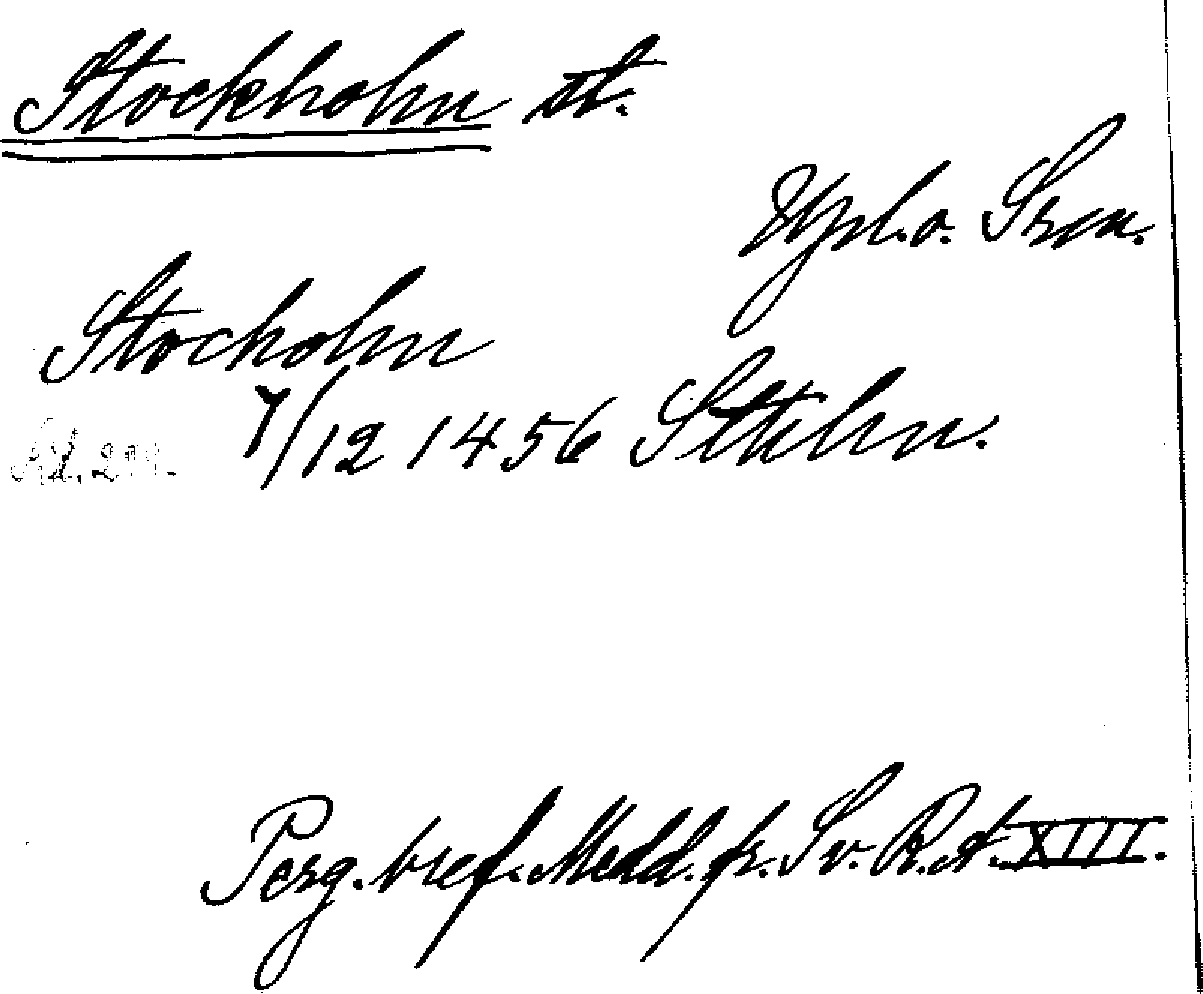 Stockholm st.
Upl. o. Srm.
Stocholm
7/12 1456 Sthlm.
Perg. bref. Medd. fr. Sv. R. A. XIII.